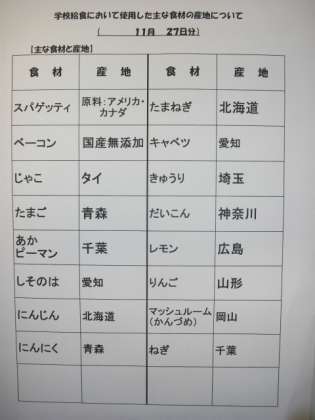 学校給食において使用した主な食材の産地について
( 11月 27日分)
【主な食材と産地】
食 材 産 地 食 材 産 地
スパゲッティ 原料:アメリカ・カナダ たまねぎ 北海道
ベーコン 国産無添加 キャベツ 愛知
じゃこ タイ きゅうり 埼玉
たまご 青森 だいこん 神奈川
あかピーマン 千葉 レモン 広島
しそのは 愛知 りんご 山形
にんじん 北海道 マッシュルーム(かんづめ) 岡山
にんにく 青森 ねぎ 千葉